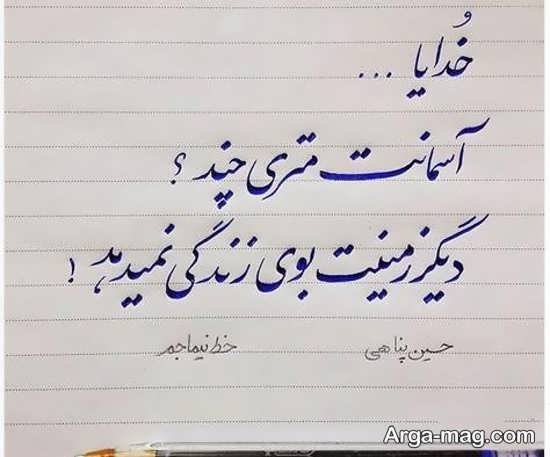 خُدایا ...
آسمانت متری چند ؟
دیگر زمینت بوی زندگی نمیدهد !
حسین پناهی خط نیما جم
Arga-mag.com